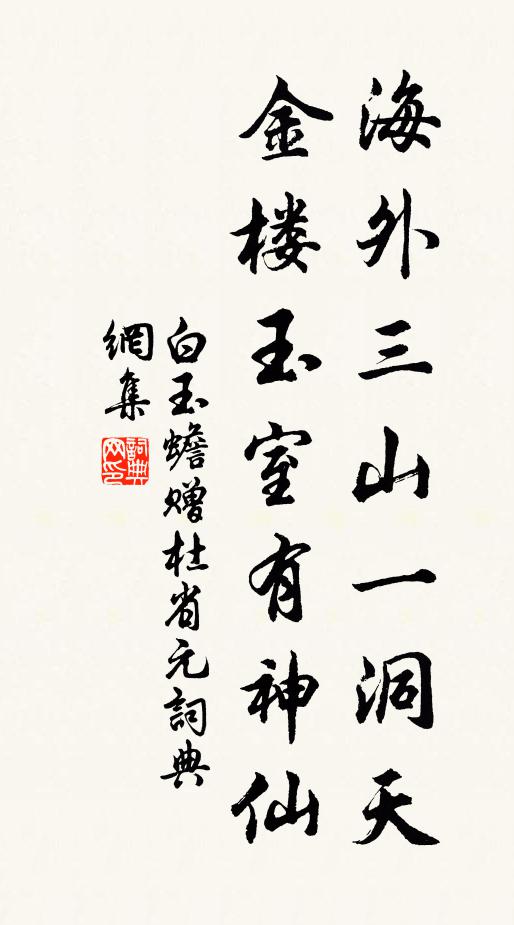 海外三山一洞天
金楼玉室有神仙
白玉蟾赠杜省元詞典
網集
詞典网印